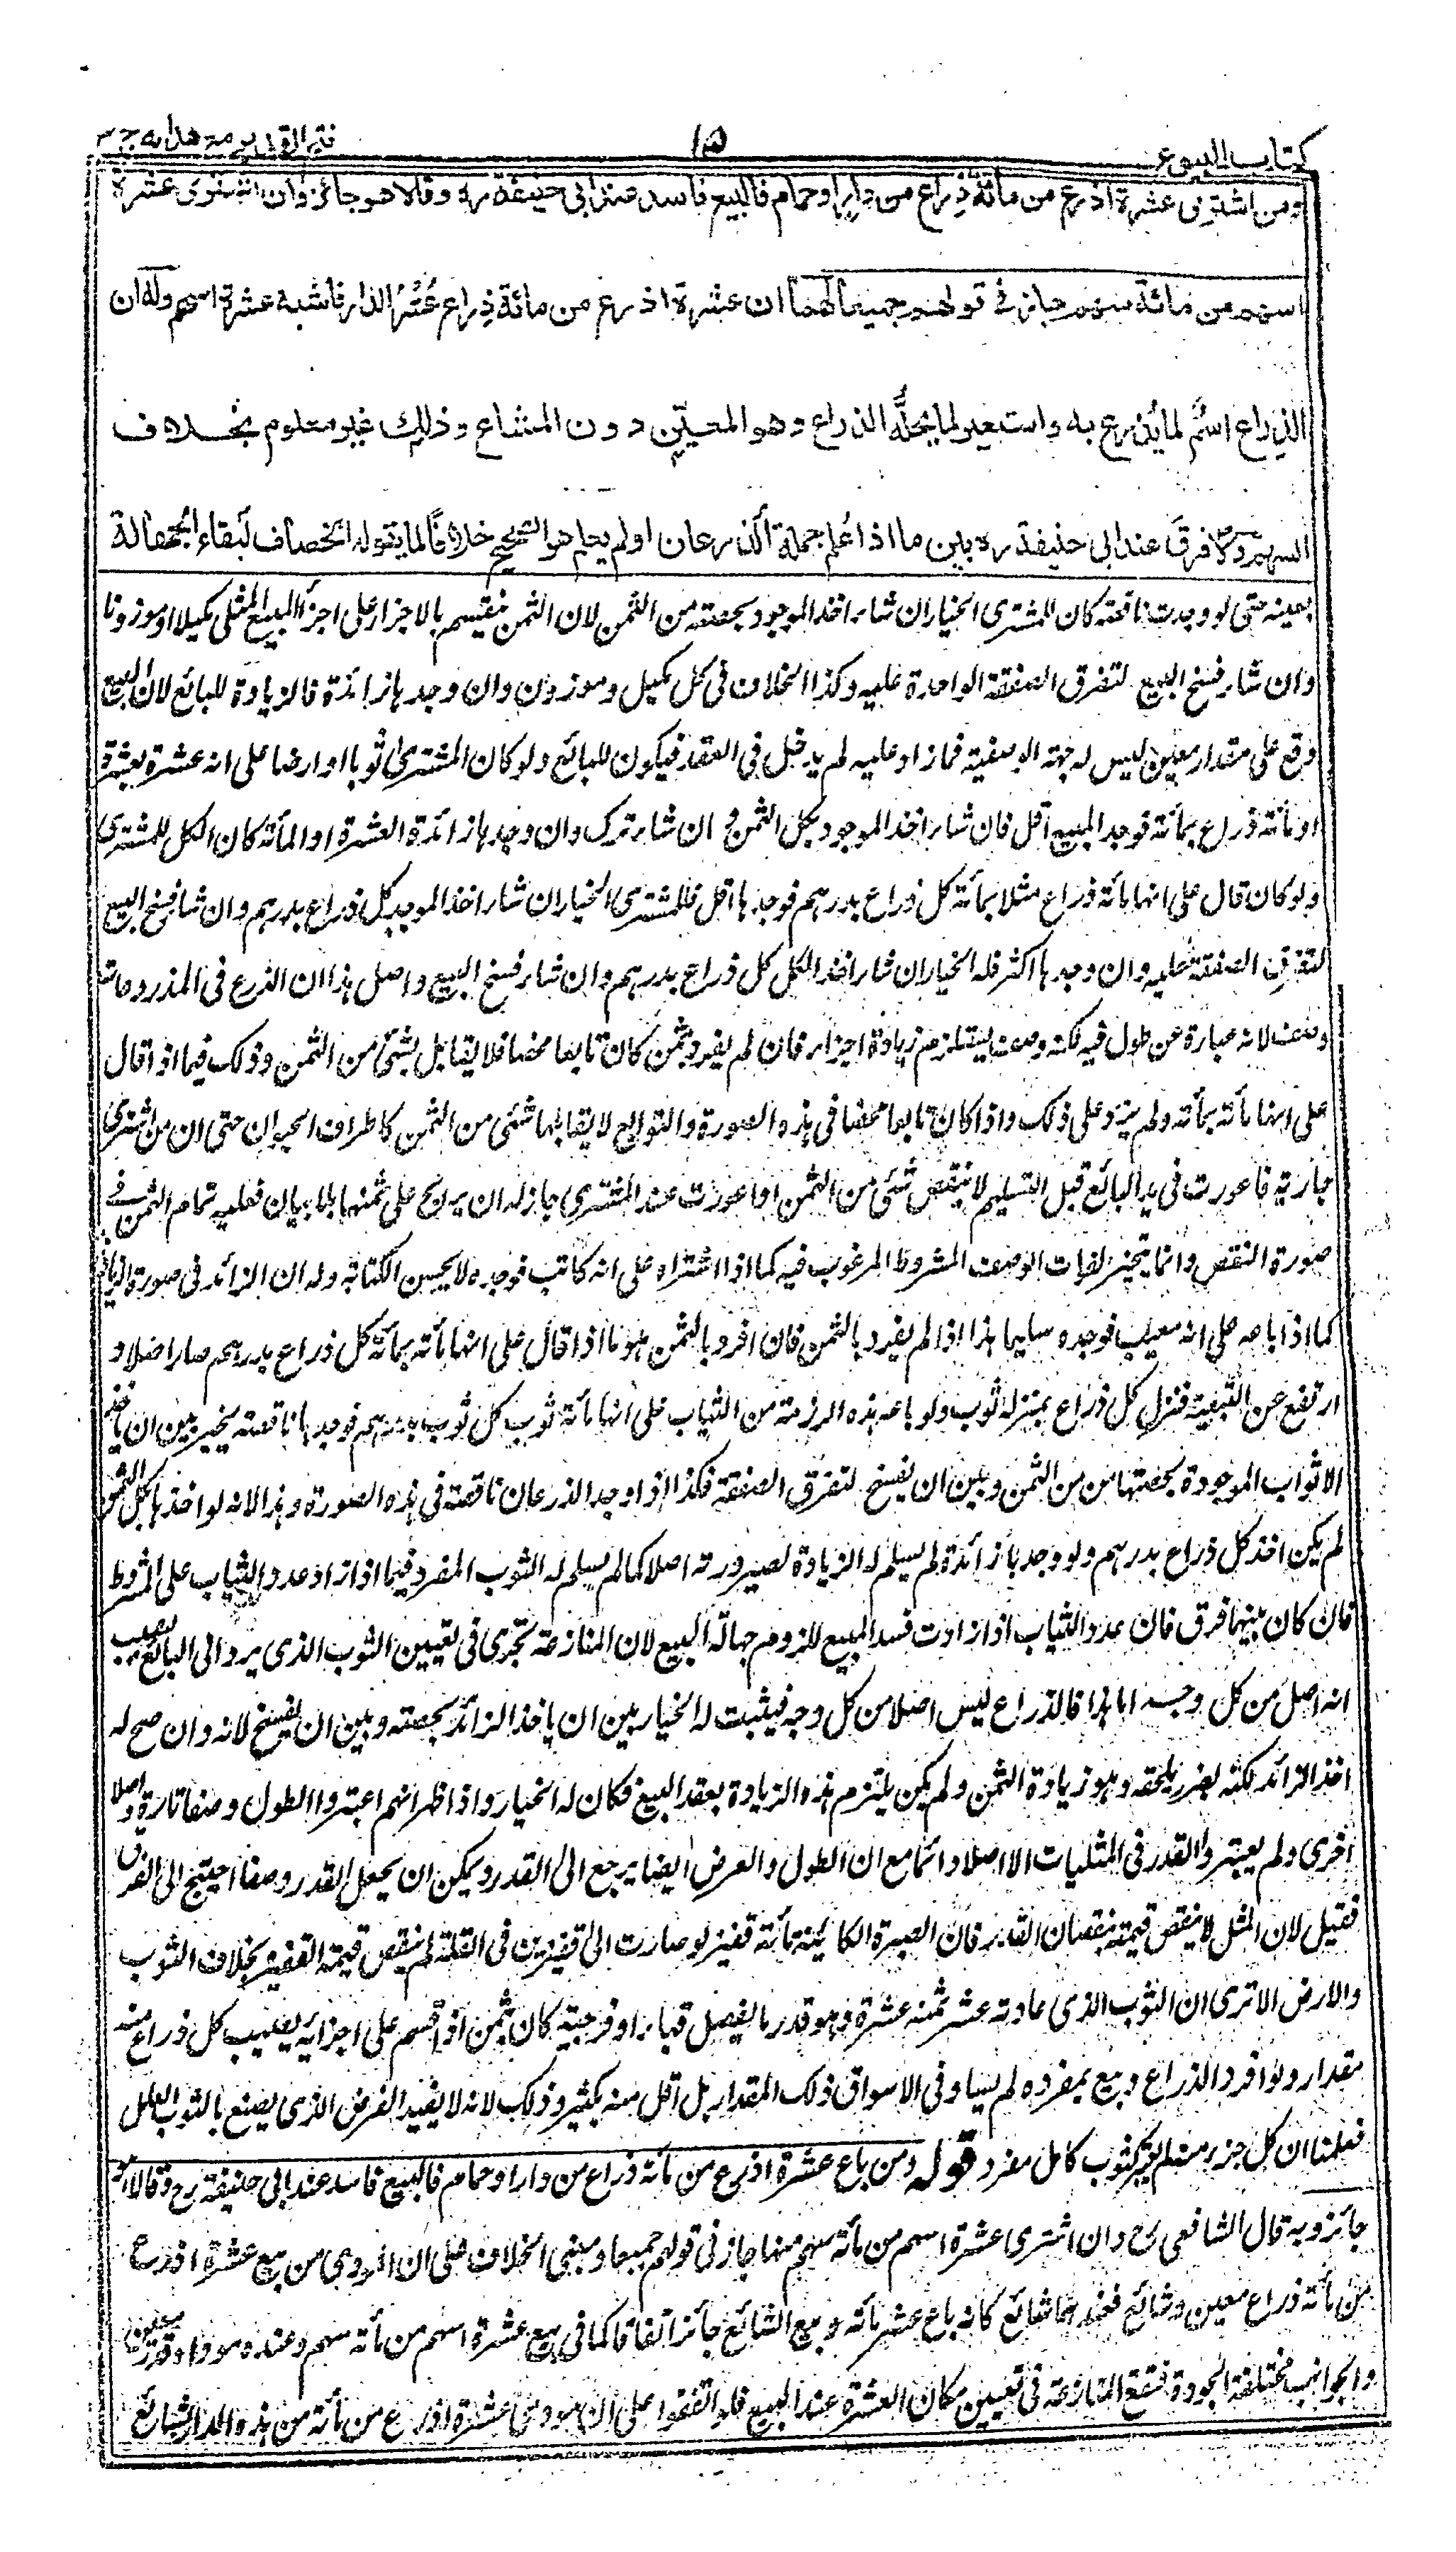 كتاب البيوع
١٥
فتح القدير مع هدايه ج ٣
ومن اشترى عشرة اذرع من مائة ذراع من دار او حمام فالبيع فاسد عند ابى حنيفة ره وقالا هو جائز وان اشترى عشرة
اسهم من مائة سهم جاز فى قولهم جميعا لهما ان عشرة اذرع من مائة ذراع عُشر الدار فاشبه عشرة اسهم وله ان
الذراع اسمٌ لما يُذرع به واستعير لما يحلّه الذراع وهو المعيّن دون المشاع وذلك غير معلوم بخلاف
السهم ولا فرق عند ابى حنيفة ره بين ما اذا عُلم جملة الذرعان او لم يعلم هو الصحيح خلافًا لما يقوله الخصاف لبقاء الجهالة
بعينه حتى لو وجدت ناقصة كان للمشترى الخيار ان شاء اخذ الموجود بحصته من الثمن لان الثمن ينقسم بالاجزاء على اجزاء المبيع المثلى مكيلا او موزونا
وان شاء فسخ البيع لتفرق الصفقة الواحدة عليه وكذا الخلاف فى كل مكيل وموزون وان وجدها زائدة فالزيادة للبائع لان البيع
وقع على مقدار معين ليس له جهة الوصفية فما زاد عليه لم يدخل فى العقد فيكون للبائع ولو كان المشترى ثوبا او ارضا على انه عشرة بعشرة
او مائة ذراع بمائة فوجد المبيع اقل فان شاء اخذ الموجود بكل الثمن و ان شاء ترك وان وجدها زائدة العشرة او المائة كان الكل للمشترى
ولو كان قال على انها مائة ذراع مثلا بمائة كل ذراع بدرهم فوجدها اقل فللمشترى الخيار ان شاء اخذ الموجود كل ذراع بدرهم وان شاء فسخ البيع
لتفرق الصفقة عليه وان وجدها اكثر فله الخيار ان شاء اخذ الكل كل ذراع بدرهم وان شاء فسخ البيع واصل هذا ان الذرع فى المذروعات
وصف لانه عبارة عن طول فيه لكنه وصف يستلزم زيادة اجزاء فان لم يفرد بثمن كان تابعا محضا فلا يقابل بشئ من الثمن وذلك فيما اذا قال
على انها مائة بمائة ولم يزد على ذلك واذا كان تابعا محضا فى هذه الصورة والتوابع لا يقابلها شئ من الثمن كاطراف الحيوان حتى ان من اشترى
جارية فاعورت فى يد البائع قبل التسليم لا ينقص شئ من الثمن او اعورت عند المشترى جاز له ان يربح على ثمنها بلا بيان فعليه تمام الثمن فى
صورة النقص وانما يتخير لفوات الوصف المشروط المرغوب فيه كما اذا اشتراه على انه كاتب فوجده لا يحسن الكتابة وله ان الزائد فى صورة الزيادة
كما اذا باعه على انه معيب فوجده سليما هذا اذا لم يفرد بالثمن فان افرد بالثمن هو ما اذا قال على انها مائة بمائة كل ذراع بدرهم صار اصلا و
ارتفع عن التبعية فنزل كل ذراع بمنزلة ثوب ولو باعه هذه الرزمة من الثياب على انها مائة ثوب كل ثوب بدرهم فوجدها ناقصة يخير بين ان ياخذ
الاثواب الموجودة بحصتها من الثمن وبين ان يفسخ لتفرق الصفقة فكذا اذا وجد الذرعان ناقصة فى هذه الصورة وهذا لانه لو اخذها بكل الثمن
لم يكن اخذ كل ذراع بدرهم ولو وجدها زائدة لم يسلم له الزيادة لصيرورته اصلا كما لم يسلم له الثوب المفرد فيما اذا زاد عدد الثياب على المشروط
فان كان بينهما فرق فان عدد الثياب اذا زادت فسد البيع للزوم جهالة المبيع لان المنازعة تجرى فى تعيين الثوب الذى يرد الى البائع بسبب
انه اصل من كل وجه اما هذا فالذراع ليس اصلا من كل وجه فيثبت له الخيار بين ان ياخذ الزائد بحصته وبين ان يفسخ لانه وان صح له
اخذ الزائد لكنه بضرر يلحقه وهو زيادة الثمن ولم يكن يلتزم هذه الزيادة بعقد البيع فكان له الخيار واذا ظهر انهم اعتبروا الطول وصفا تارة واصلا
اخرى ولم يعتبروا القدر فى المثليات الا اصلا دائما مع ان الطول والعرض ايضا يرجع الى القدر ويمكن ان يجعل القدر وصفا احتيج الى الفرق
فقيل لان المثلى لا ينقص قيمته بنقصان القدر فان الصبرة الكائنة مائة قفيز لو صارت الى قفيزين فى القلة لم ينقص قيمة القفيز بخلاف الثوب
والارض الا ترى ان الثوب الذى عادته عشر ثمنه عشرة وهو قدر ما يفصل قباء او فرجية كان بثمن اذا قسم على اجزائه يصيب كل ذراع منه
مقدار ولو افرد الذراع وبيع بمفرده لم يساو فى الاسواق ذلك المقدار بل اقل منه بكثير وذلك لانه لا يفيد الغرض الذى يصنع بالثوب الكامل
فعلمنا ان كل جزء منه لم يعتبر كثوب كامل مفرد قوله ومن باع عشرة اذرع من مائة ذراع من دار او حمام فالبيع فاسد عند ابى حنيفة رح وقالا هو
جائز وبه قال الشافعى رح وان اشترى عشرة اسهم من مائة سهم منها جاز فى قولهم جميعا ومبنى الخلاف على ان المؤدى من بيع عشرة اذرع
من مائة ذراع معين وشائع فعندهما شائع كانه باع عشر مائة وبيع الشائع جائز اتفاقا كما فى بيع عشرة اسهم من مائة سهم وعنده مؤداه قدر معين
والجوانب مختلفة الجودة فتقع المنازعة فى تعيين مكان العشرة عند البيع فلو اتفقوا على ان مودى عشرة اذرع من مائة من هذه الدار شائع